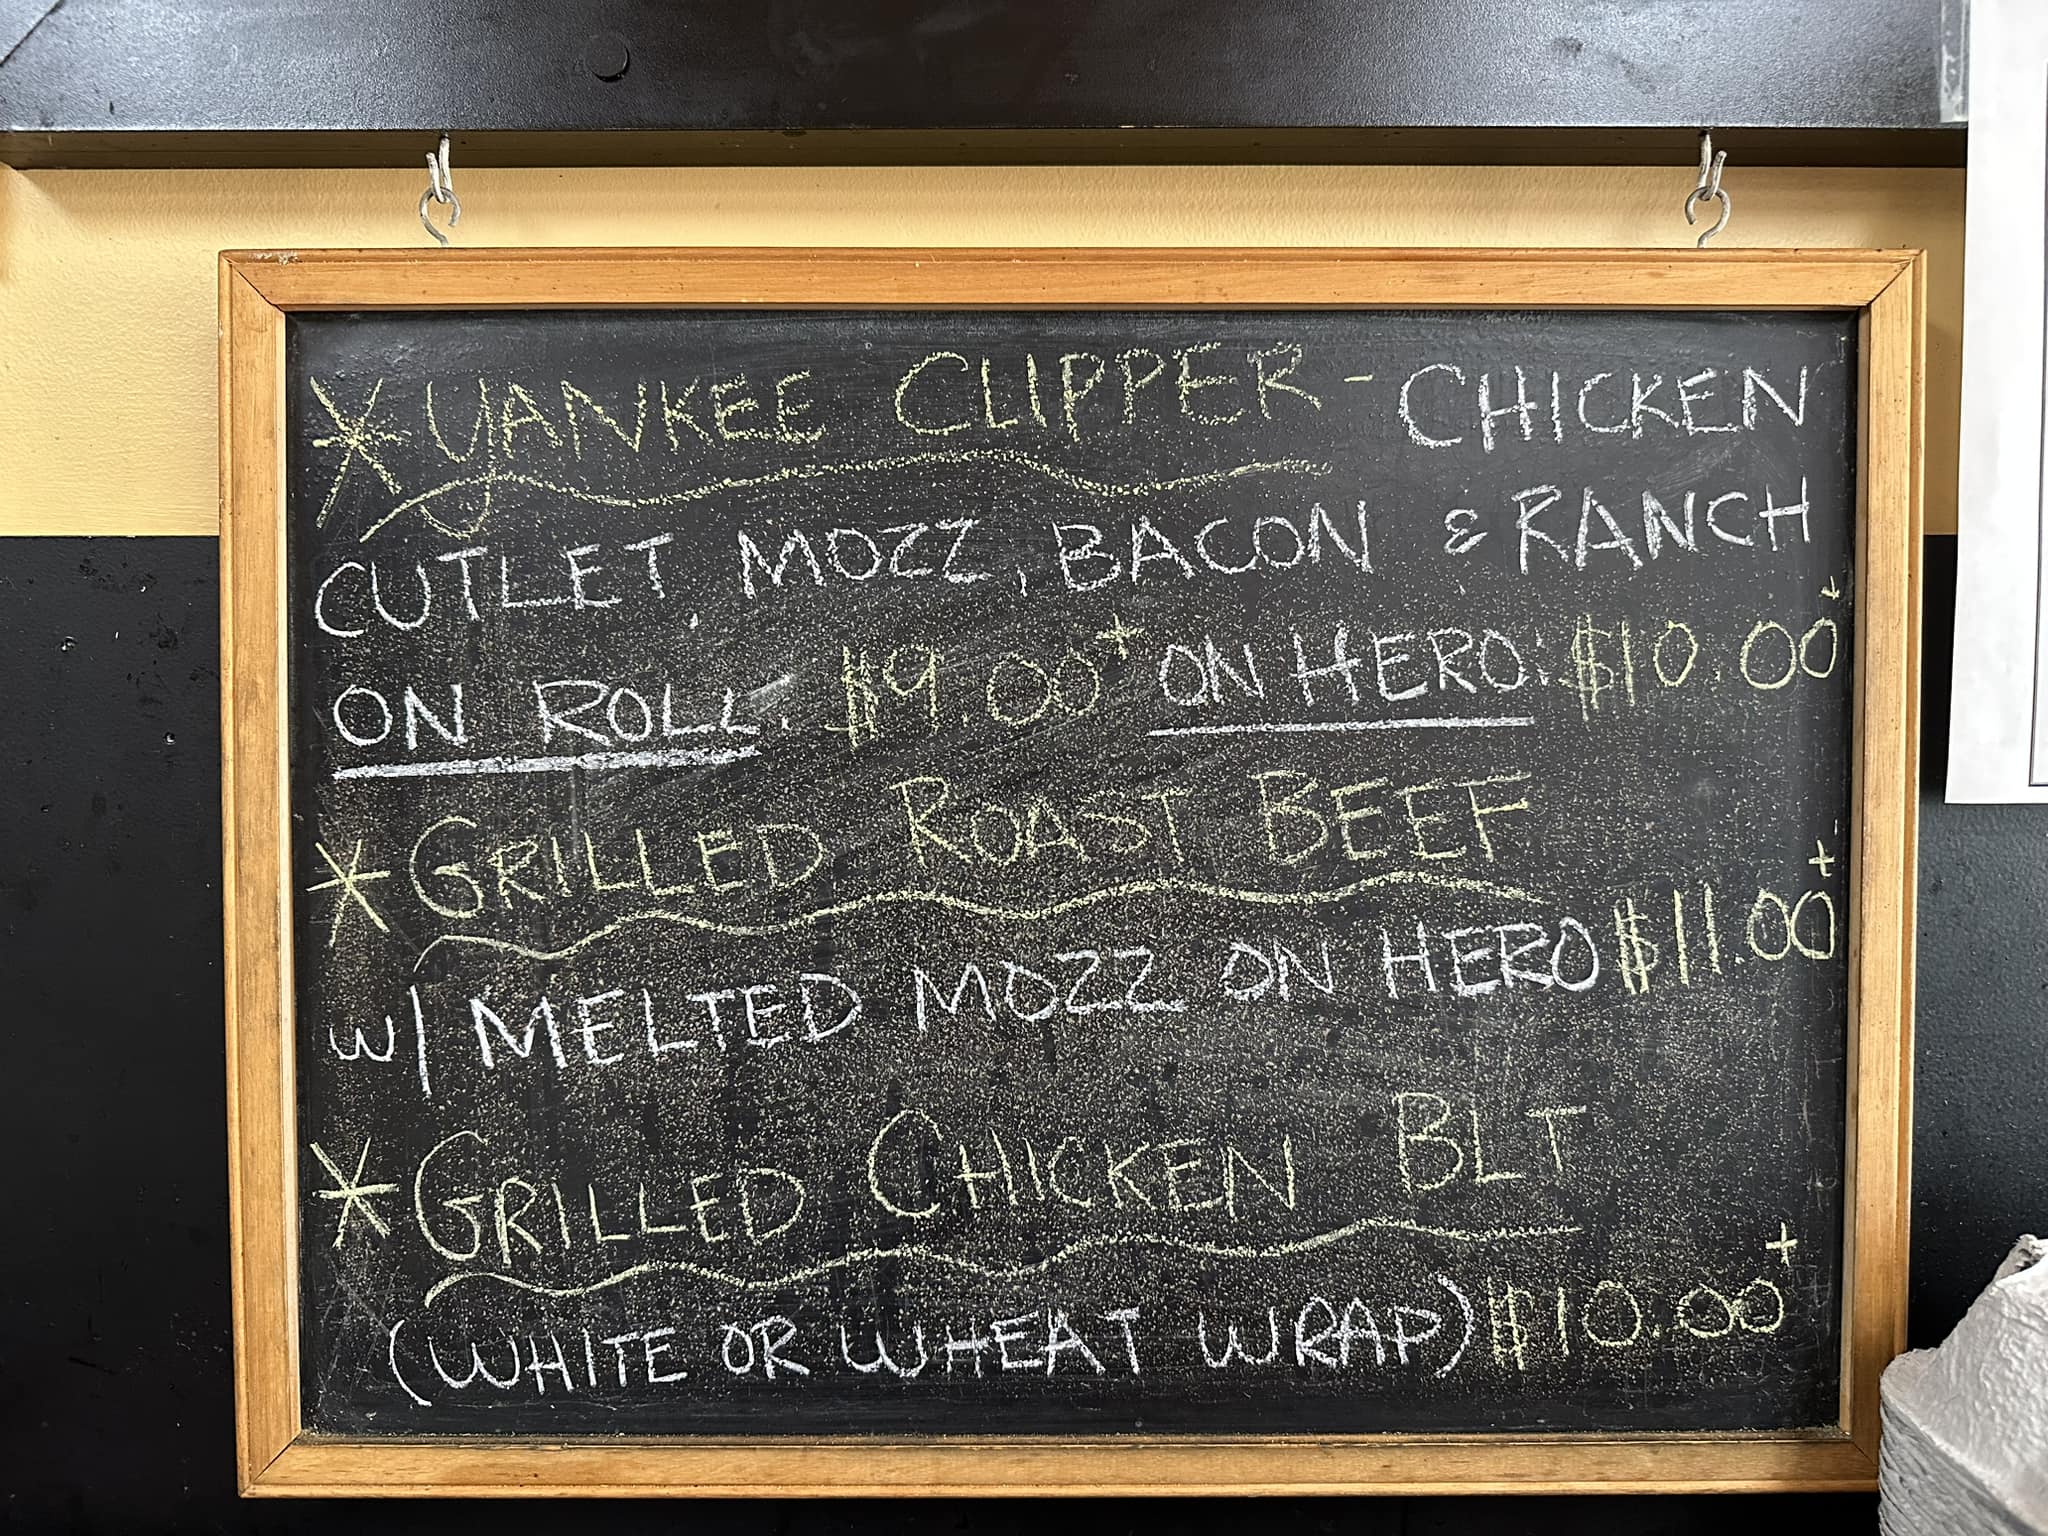 * YANKEE CLIPPER - CHICKEN
CUTLET, MOZZ, BACON & RANCH
ON ROLL: $9.00+ ON HERO: $10.00+
* GRILLED ROAST BEEF
W/ MELTED MOZZ ON HERO $11.00+
* GRILLED CHICKEN BLT
(WHITE OR WHEAT WRAP) $10.00+